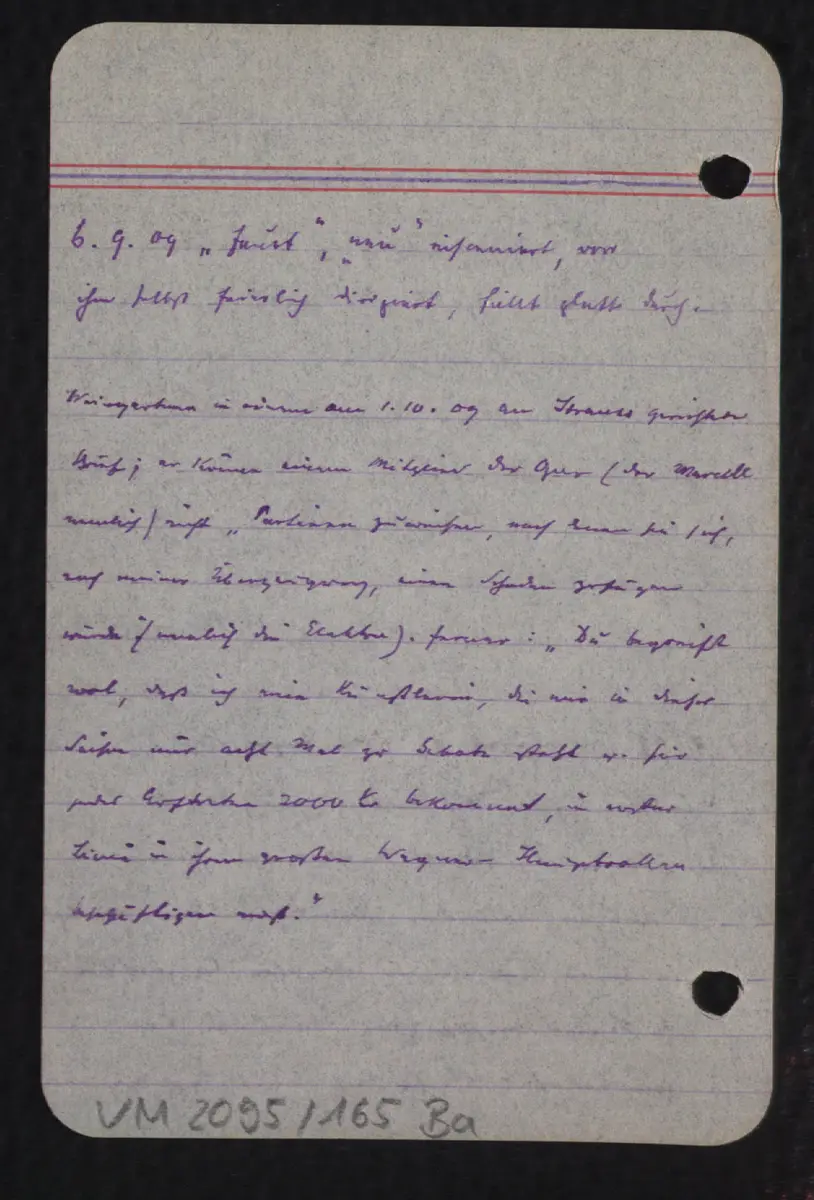 6. 9. 09 „Faust“, „neu“ inszeniert, von
ihm selbst feierlich dirigiert, fällt glatt durch.
Weingartner in einem am 1. 10. 09 an Strauss gerichteten
Brief; er könne einem Mitglied der Oper (der Marcell
nemlich) nicht „Partieen zuweisen, nach denen sie sich,
nach meiner Überzeugung, einen Schaden zufügen
würde“ (nemlich die Elektra). ferner: „Du begreifst
wol, daß ich eine Künstlerin, die mir in dieser
Saison nur acht Mal zu Gebote steht u. für
jedes Auftreten 2000 Kr bekommt, in erster
Linie in ihren großen Wagner-Hauptrollen
beschäftigen muß.“
VM 2095/165 Ba